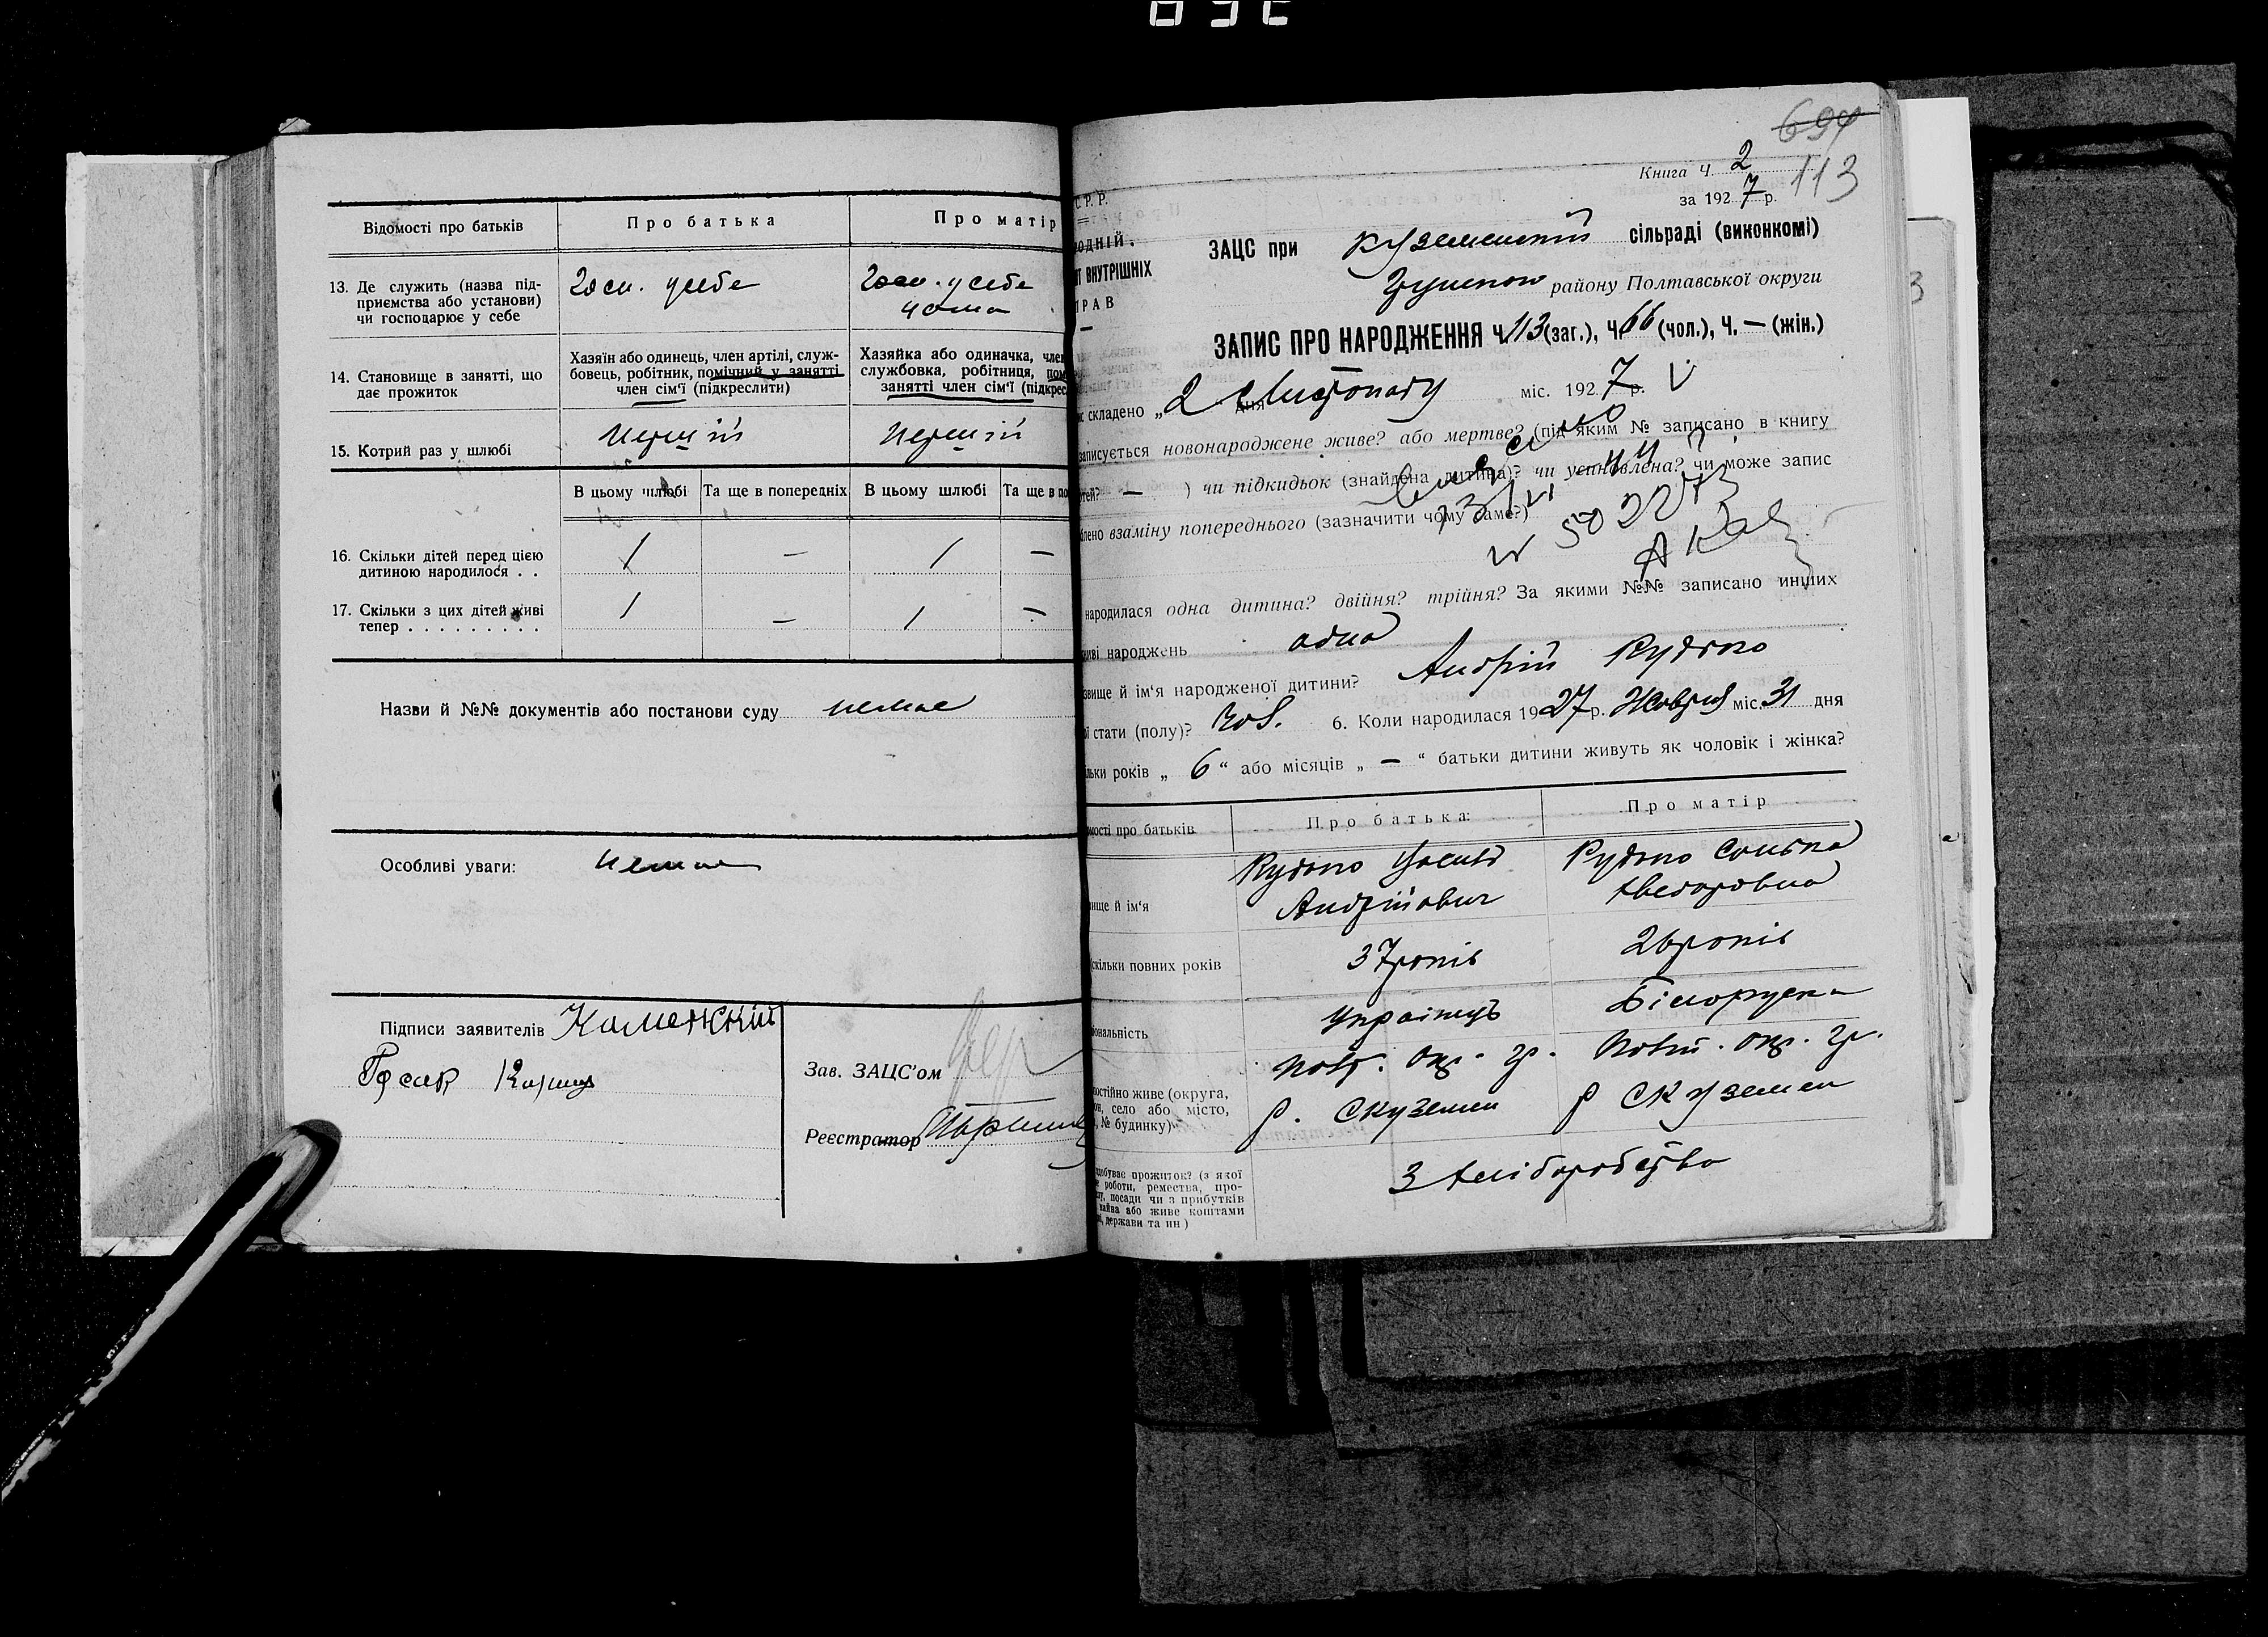 Відомості про батьків
Про батька
Про матір
13. Де служить (назва під-
приємства або установи)
чи господарює у себе
Госп. у себе
Госп. у себе
дома
14. Становище в занятті, що
дає прожиток
Хазяїн або одинець, член артілі, служ-
бовець, робітник, помічний у занятті
член сім'ї (підкреслити)
Хазяйка або одиначка, член
службовка, робітниця, пом
занятті член сім'ї (підкрес
15. Котрий раз у шлюбі
перший
перший
В цьому шлюбі
Та ще в попередніх
В цьому шлюбі
Та ще в по
16. Скільки дітей перед цією
дитиною народилося . .
1
—
1
—
17. Скільки з цих дітей живі
тепер . . . . . . . . .
1
—
1
—
Назви й №№ документів або постанови суду немає
Особливі уваги: немає
Підписи заявителів Каменский
Зав. ЗАЦС'ом
Реєстратор
694
Книга Ч. 2
113
за 1927 р.
С.Р.Р.
ОДНІЙ.
Т ВНУТРІШНІХ
РАВ
—
ЗАЦС при Куземенській сільраді (виконкомі)
Грунськом району Полтавської округи
ЗАПИС ПРО НАРОДЖЕННЯ Ч. 113 (заг.), Ч. 66 (чол.), Ч. — (жін.)
с складено „2“ дня Листопаду міс. 1927 р. V
записується новонароджене живе? або мертве? (під яким № записано в книгу
тей? — ) чи підкидьок (знайдена дитина)? чи усиновлена? чи може запис
блено взаміну попереднього (зазначити чому саме?)
народилася одна дитина? двійня? трійня? За якими №№ записано инших
ниві народжень одна
звище й ім'я народженої дитини? Андрій Рудько
ої стати (полу)? чол. 6. Коли народилася 1927 р. Жовтня міс. 31 дня
льки років „6“ або місяців „—“ батьки дитини живуть як чоловік і жінка?
мості про батьків
Про батька:
Про матір
вище й ім'я
Рудько
Андрійович
Рудько
Скільки повних років
37 років
26 років
іональність
Українець
Білоруска
постійно живе (округа,
он, село або місто,
, № будинку)
Полт. окр. Гр.
р. С Куземен
Полт. окр. Гр.
р С Куземен
здобуває прожиток? (з якої
е роботи, ремества, про-
су, посади чи з прибутків
майва або живе коштами
і, держави та ин)
З хліборобства